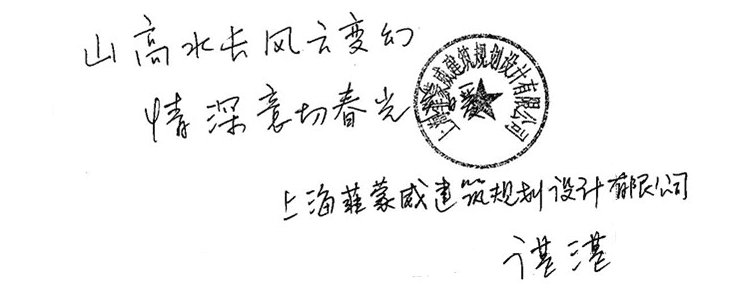 山高水长风云变幻
情深意切春光
上海菲蒙威建筑规划设计有限公司
上海菲蒙威建筑规划设计有限公司
谌湛